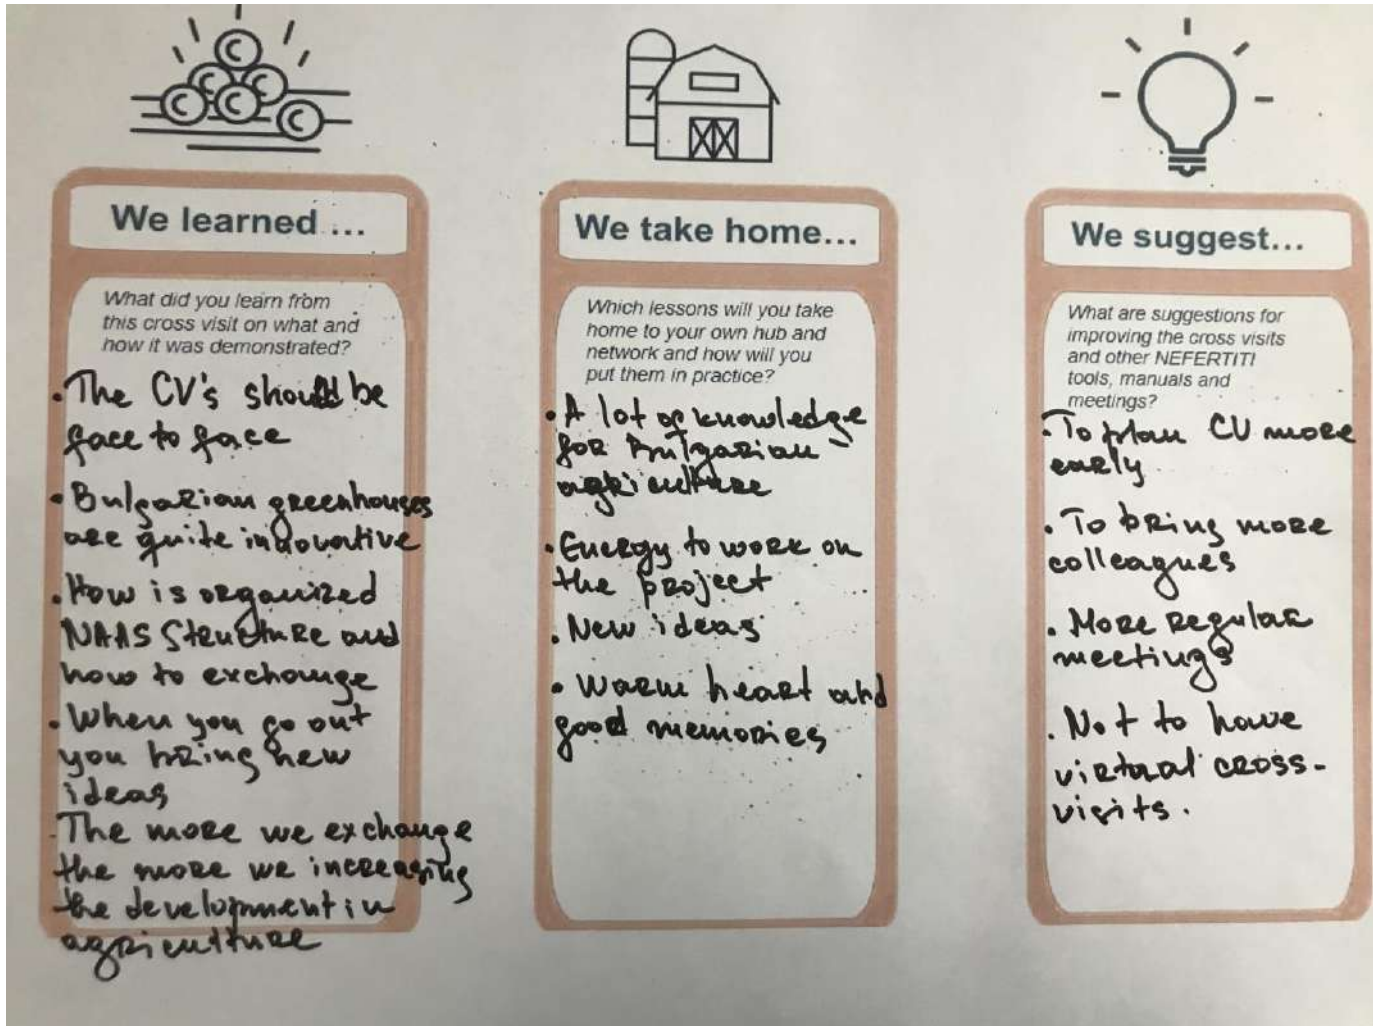 We learned ...
What did you learn from
this cross visit on what and
how it was demonstrated?
• The CV's should be
face to face
• Bulgarian greenhouses
are quite innovative
• How is organized
NAAS Structure and
how to exchange
• When you go out
you bring new
ideas
The more we exchange
the more we increasing
the development in
agriculture
We take home...
Which lessons will you take
home to your own hub and
network and how will you
put them in practice?
• A lot of knowledge
for Bulgarian
agriculture
• Energy to work on
the project
• New ideas
• Warm heart and
good memories
We suggest...
What are suggestions for
improving the cross visits
and other NEFERTITI
tools, manuals and
meetings?
• To plan CV more
early
• To bring more
colleagues
• More regular
meetings
• Not to have
virtual cross-
visits.